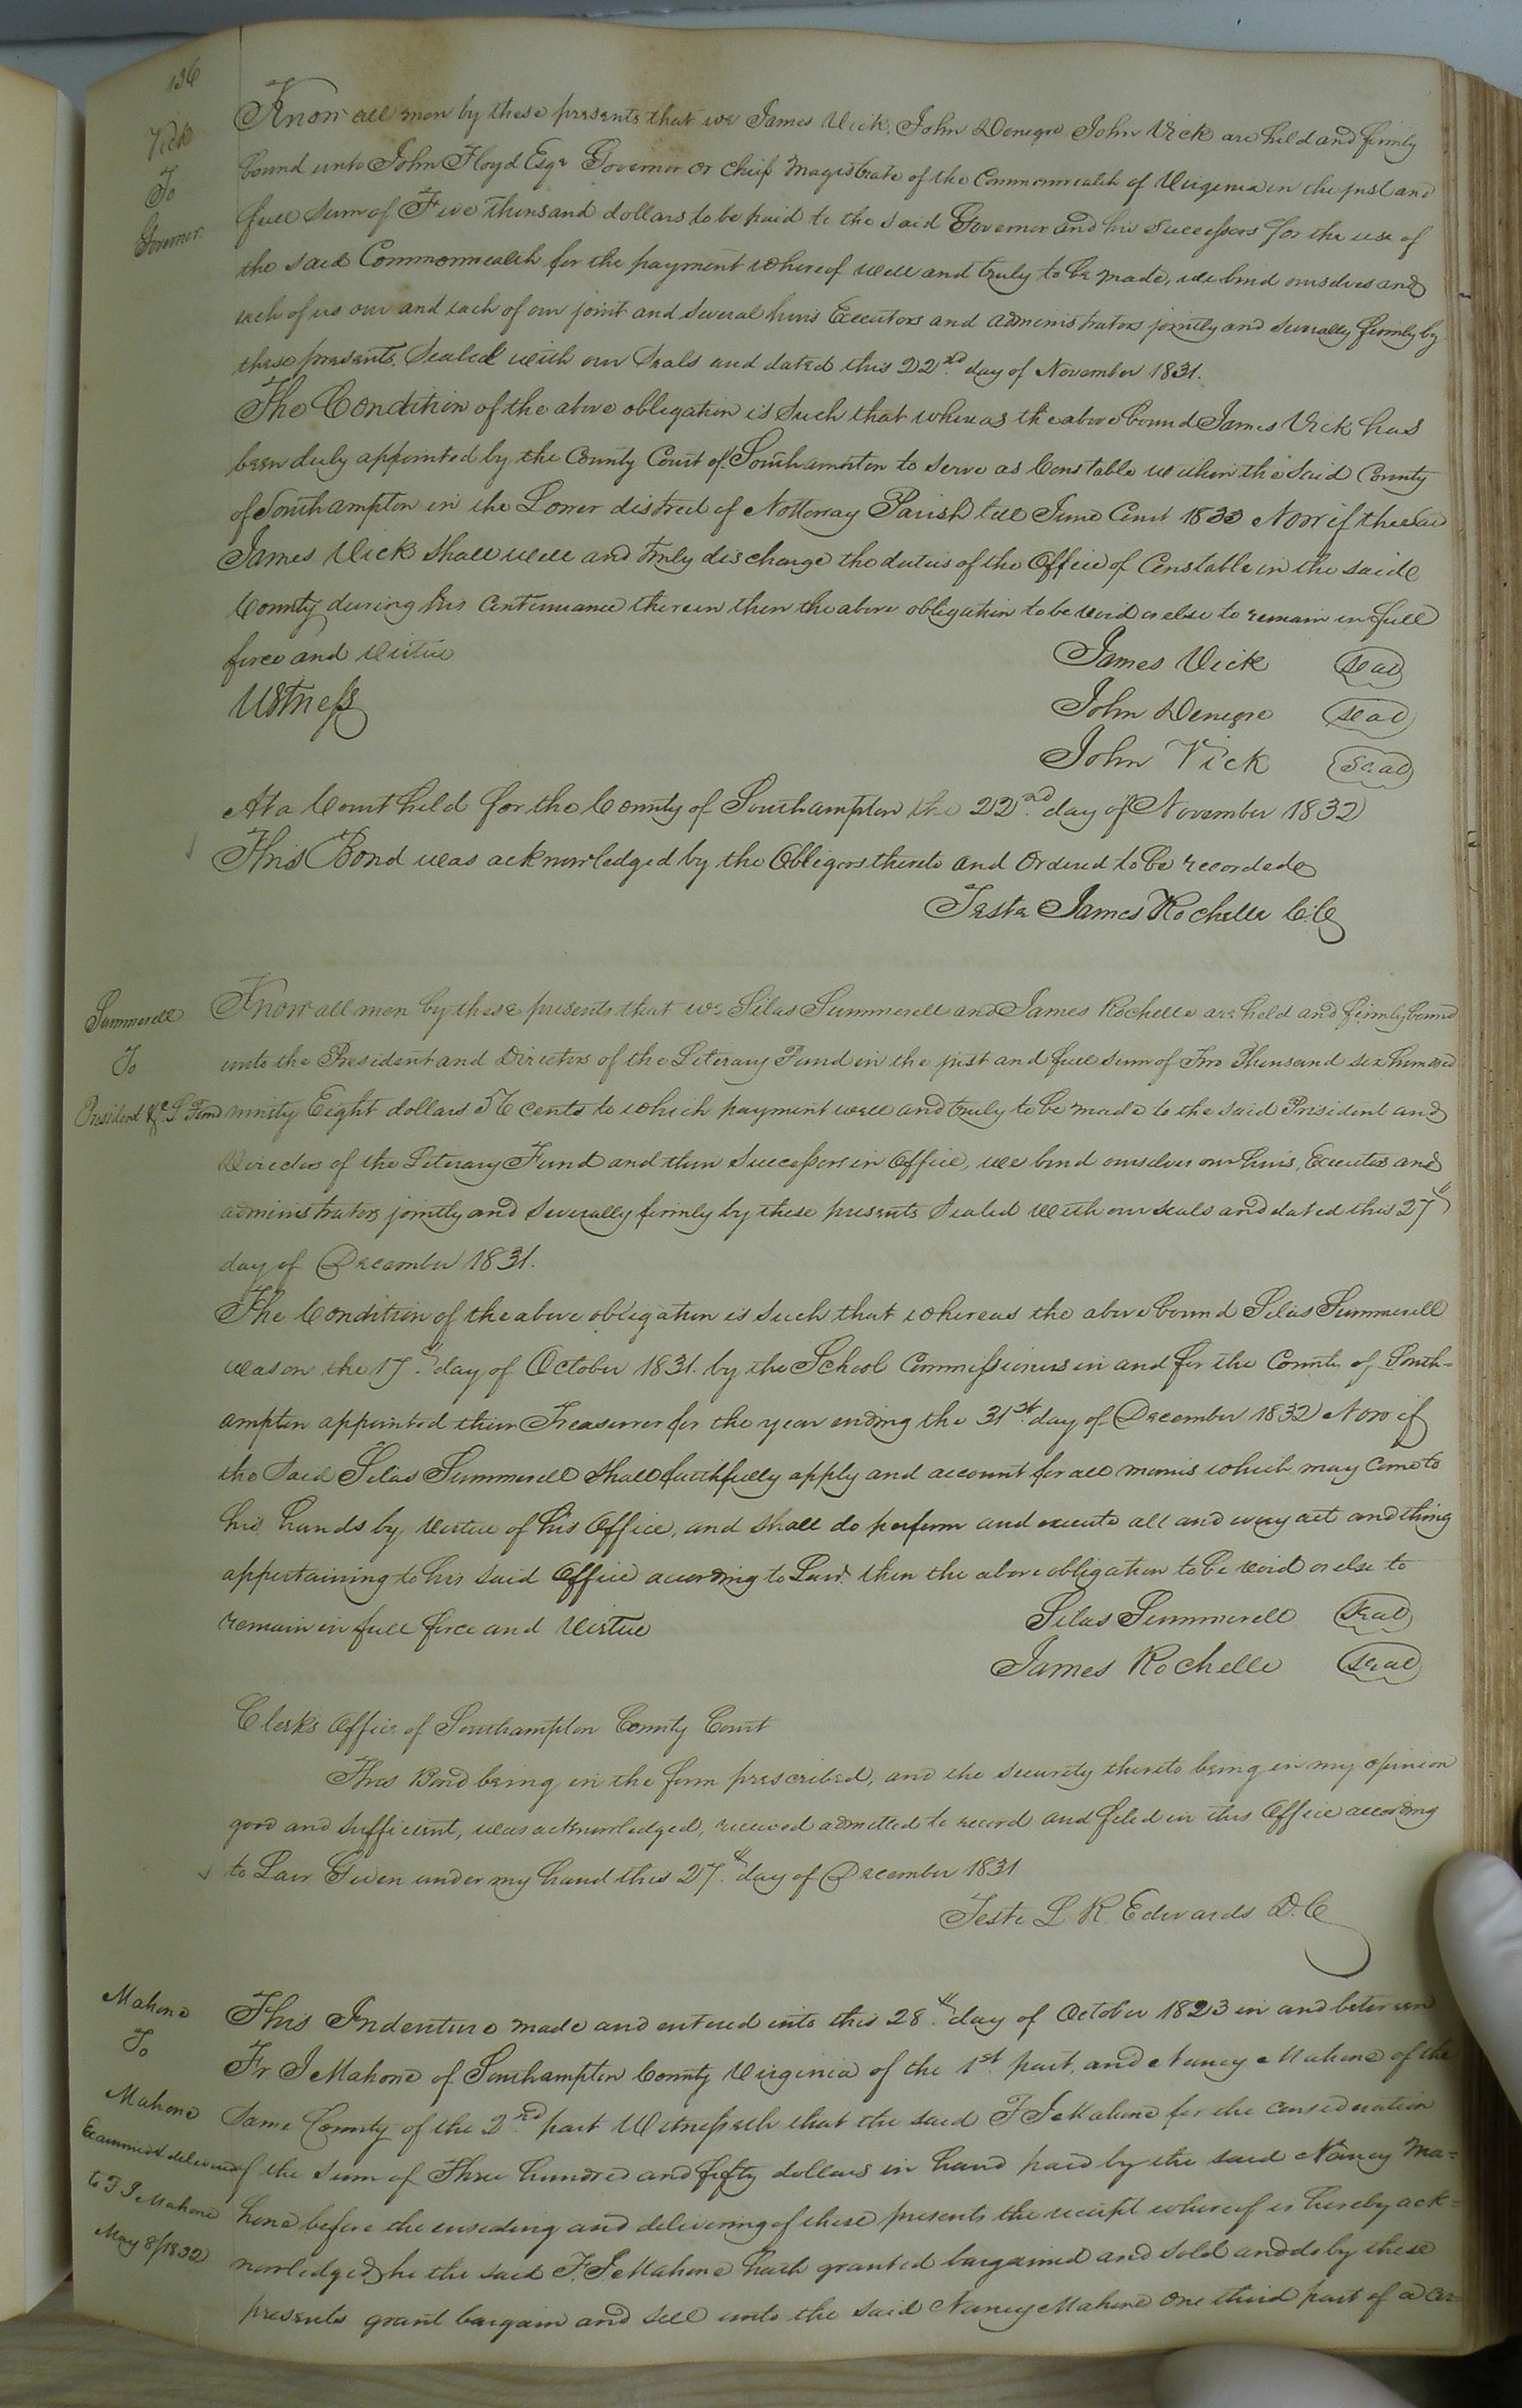 136
Vick
To
Governor
Know all men by these presents that we James Vick, John Denegre John Vick are held and firmly
bound unto John Floyd Esqr Governor or chief Magistrate of the Commonwealth of Virginia in the just and
full sum of Five Thousand dollars to be paid to the said Governor and his successors for the use of
the said Commonwealth for the payment whereof well and truly to be made, we bind ourselves and
each of us our and each of our joint and several heirs Executors and administrators jointly and severally firmly by
these presents. Sealed with our seals and dated this 22nd day of November 1831.
The Condition of the above obligation is such that whereas the above bound James Vick has
been duly appointed by the County Court of Southamton to serve as Constable within the said County
of Southampton in the Lower district of Nottoway Parish till June Court 1833 Now if the said
James Vick shall well and truly discharge the duties of the Office of Constable in the said
County during his Continuance therein then the above obligation to be void or else to remain in full
force and virtue
James Vick seal
Witness
John Denegre seal
John Vick seal
At a Court held for the County of Southampton the 22nd day of November 1832
This Bond was acknowledged by the Obligors thereto and ordered to be recorded
Teste James Rochelle C.C
Summerell
To
President &c L Fund
Know all men by these presents that we Silas Summerell and James Rochelle are held and firmly bound
unto the President and Directors of the Literary Fund in the just and full sum of Two Thousand six hundred
ninety Eight dollars 56 cents to which payment well and truly to be made to the said President and
Directors of the Literary Fund and their Successors in Office, we bind ourselves our heirs, Executors and
administrators jointly and severally firmly by these presents Sealed with our seals and dated this 27th
day of December 1831.
The Condition of the above obligation is such that whereas the above bound Silas Summerell
was on the 17th day of October 1831. by the School Commissioners in and for the County of South-
ampton appointed their Treasurer for the year ending the 31st day of December 1832 Now if
the said Silas Summerell shall faithfully apply and account for all monies which may come to
his hands by virtue of his Office, and shall do perform and execute all and every act and thing
appertaining to his said Office according to Law. then the above obligation to be void or else to
remain in full force and virtue
Silas Summerell seal
James Rochelle seal
Clerks Office of Southampton County Court
This Bond being in the form prescribed, and the security thereto being in my opinion
good and sufficient, was acknowledged, received admitted to record and filed in this Office according
to Law Given under my hand this 27th day of December 1831
Teste L. R. Edwards D.C
Mahone
To
Mahone
Examined & delivered
to F J Mahone
May 8/1832
This Indenture made and entered into this 28th day of October 1823 in and between
Fr J Mahone of Southampton County Virginia of the 1st part, and Nancy Mahone of the
same County of the 2nd part Witnesseth that the said F J Mahone for the consideration
of the sum of Three hundred and fifty dollars in hand paid by the said Nancy Ma=
hone before the ensealing and delivering of these presents the receipt whereof is hereby ack=
nowledged he the said F. J Mahone hath granted bargained and sold and do by these
presents grant bargain and sell unto the said Nancy Mahone One third part of a cer=